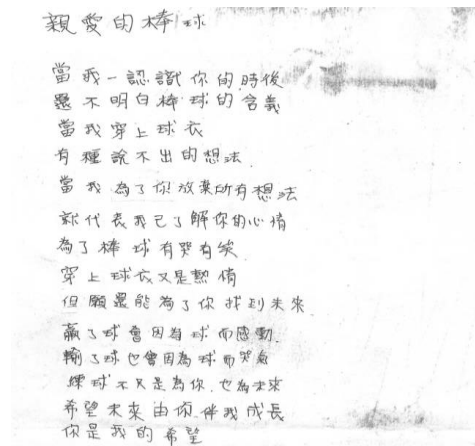 親愛的棒球
當我一認識你的時後
還不明白棒球的含義
當我穿上球衣
有種說不出的想法
當我為了你放棄所有想法
就代表我已了解你的心情
為了棒球有哭有笑
穿上球衣又是熱情
但願還能為了你找到未來
贏了球會因為球而感動
輸了球也會因為球而哭泣
練球不只是為你.也為未來
希望未來由你伴我成長
你是我的希望